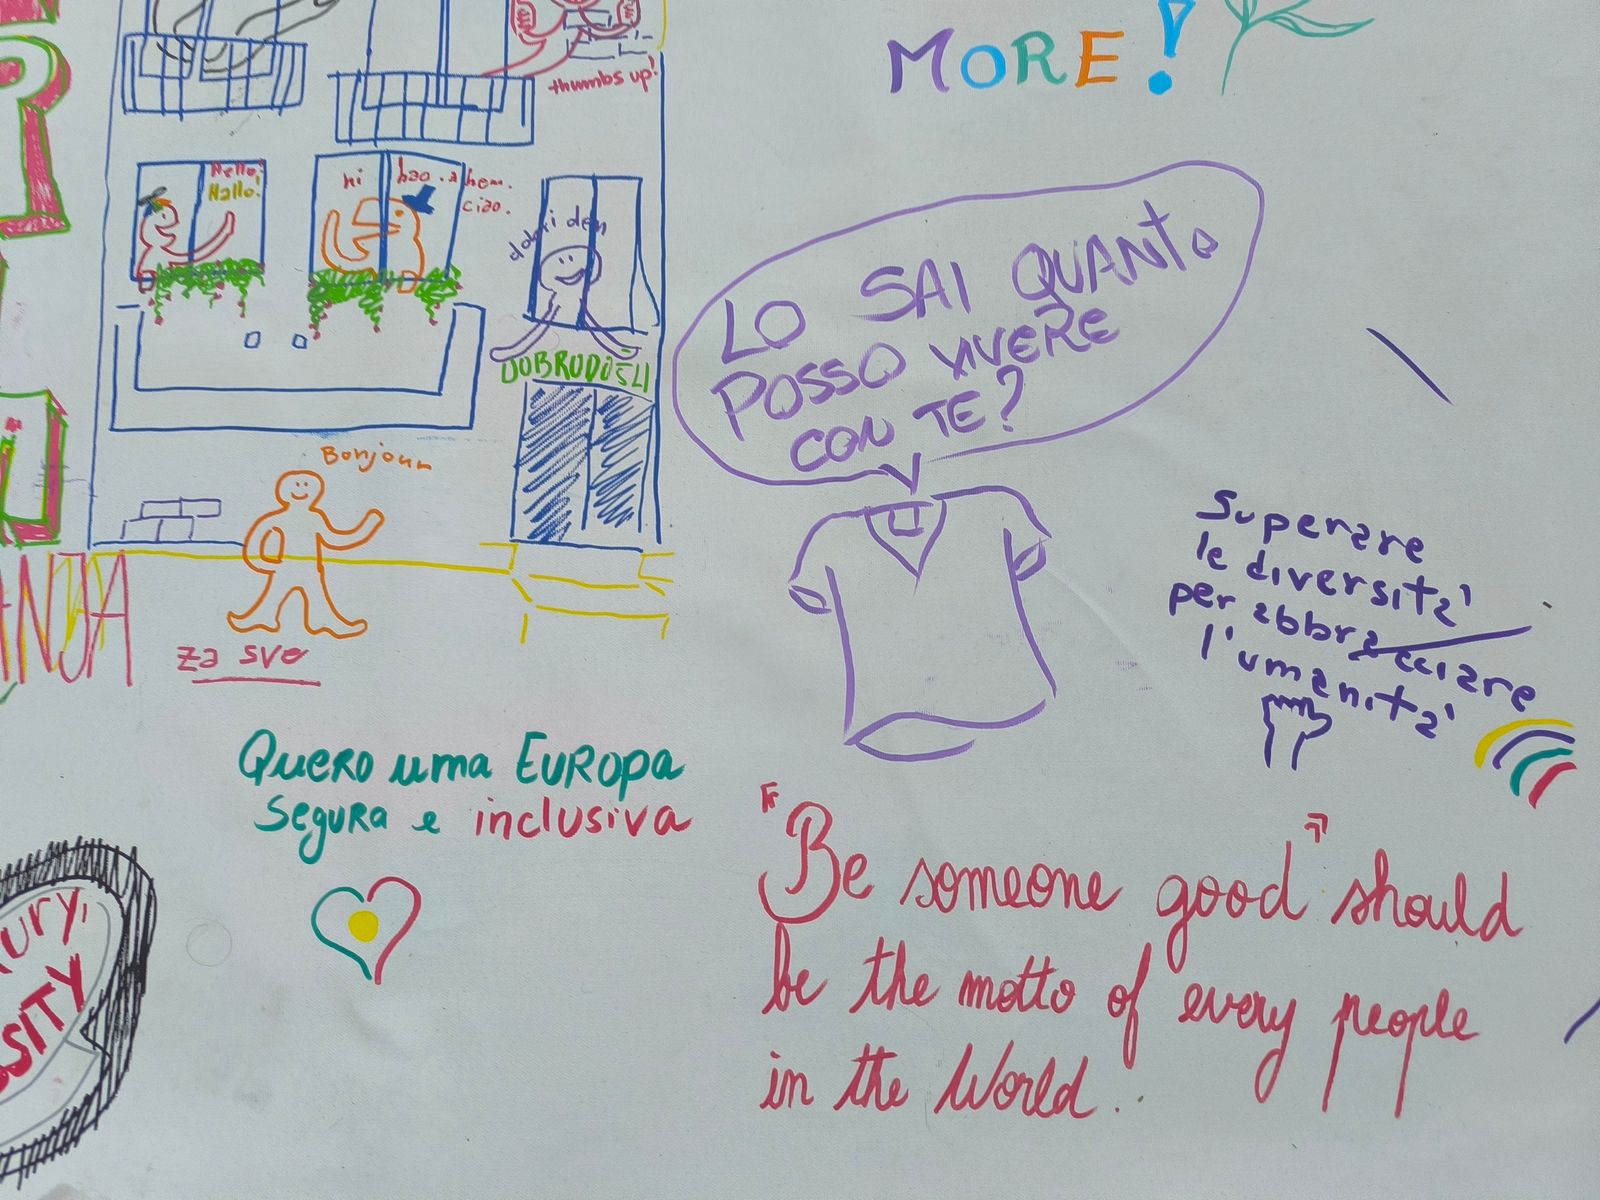 MORE!
thumbs up!
Hello!
Hallo!
hi
hao.
ahem.
ciao.
dobri den
DOBRODOŠLI
Bonjour
za sve
LO SAI QUANTO
POSSO VIVERE
CON TE?
Superare
le diversità
per abbracciare
l'umanità
Quero uma EUROPA
segura e inclusiva
"Be someone good" should
be the motto of every people
in the World..